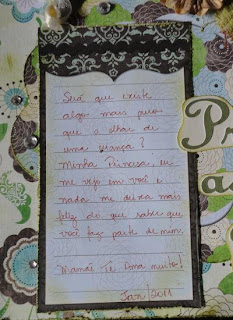 Será que existe
algo mais puro
que o olhar de
uma criança?
Minha Princesa, eu
me vejo em você e
nada me deixa mais
feliz do que saber que
você faz parte de mim.
Mamãe Te Ama muito!
Jan/2011
P
a